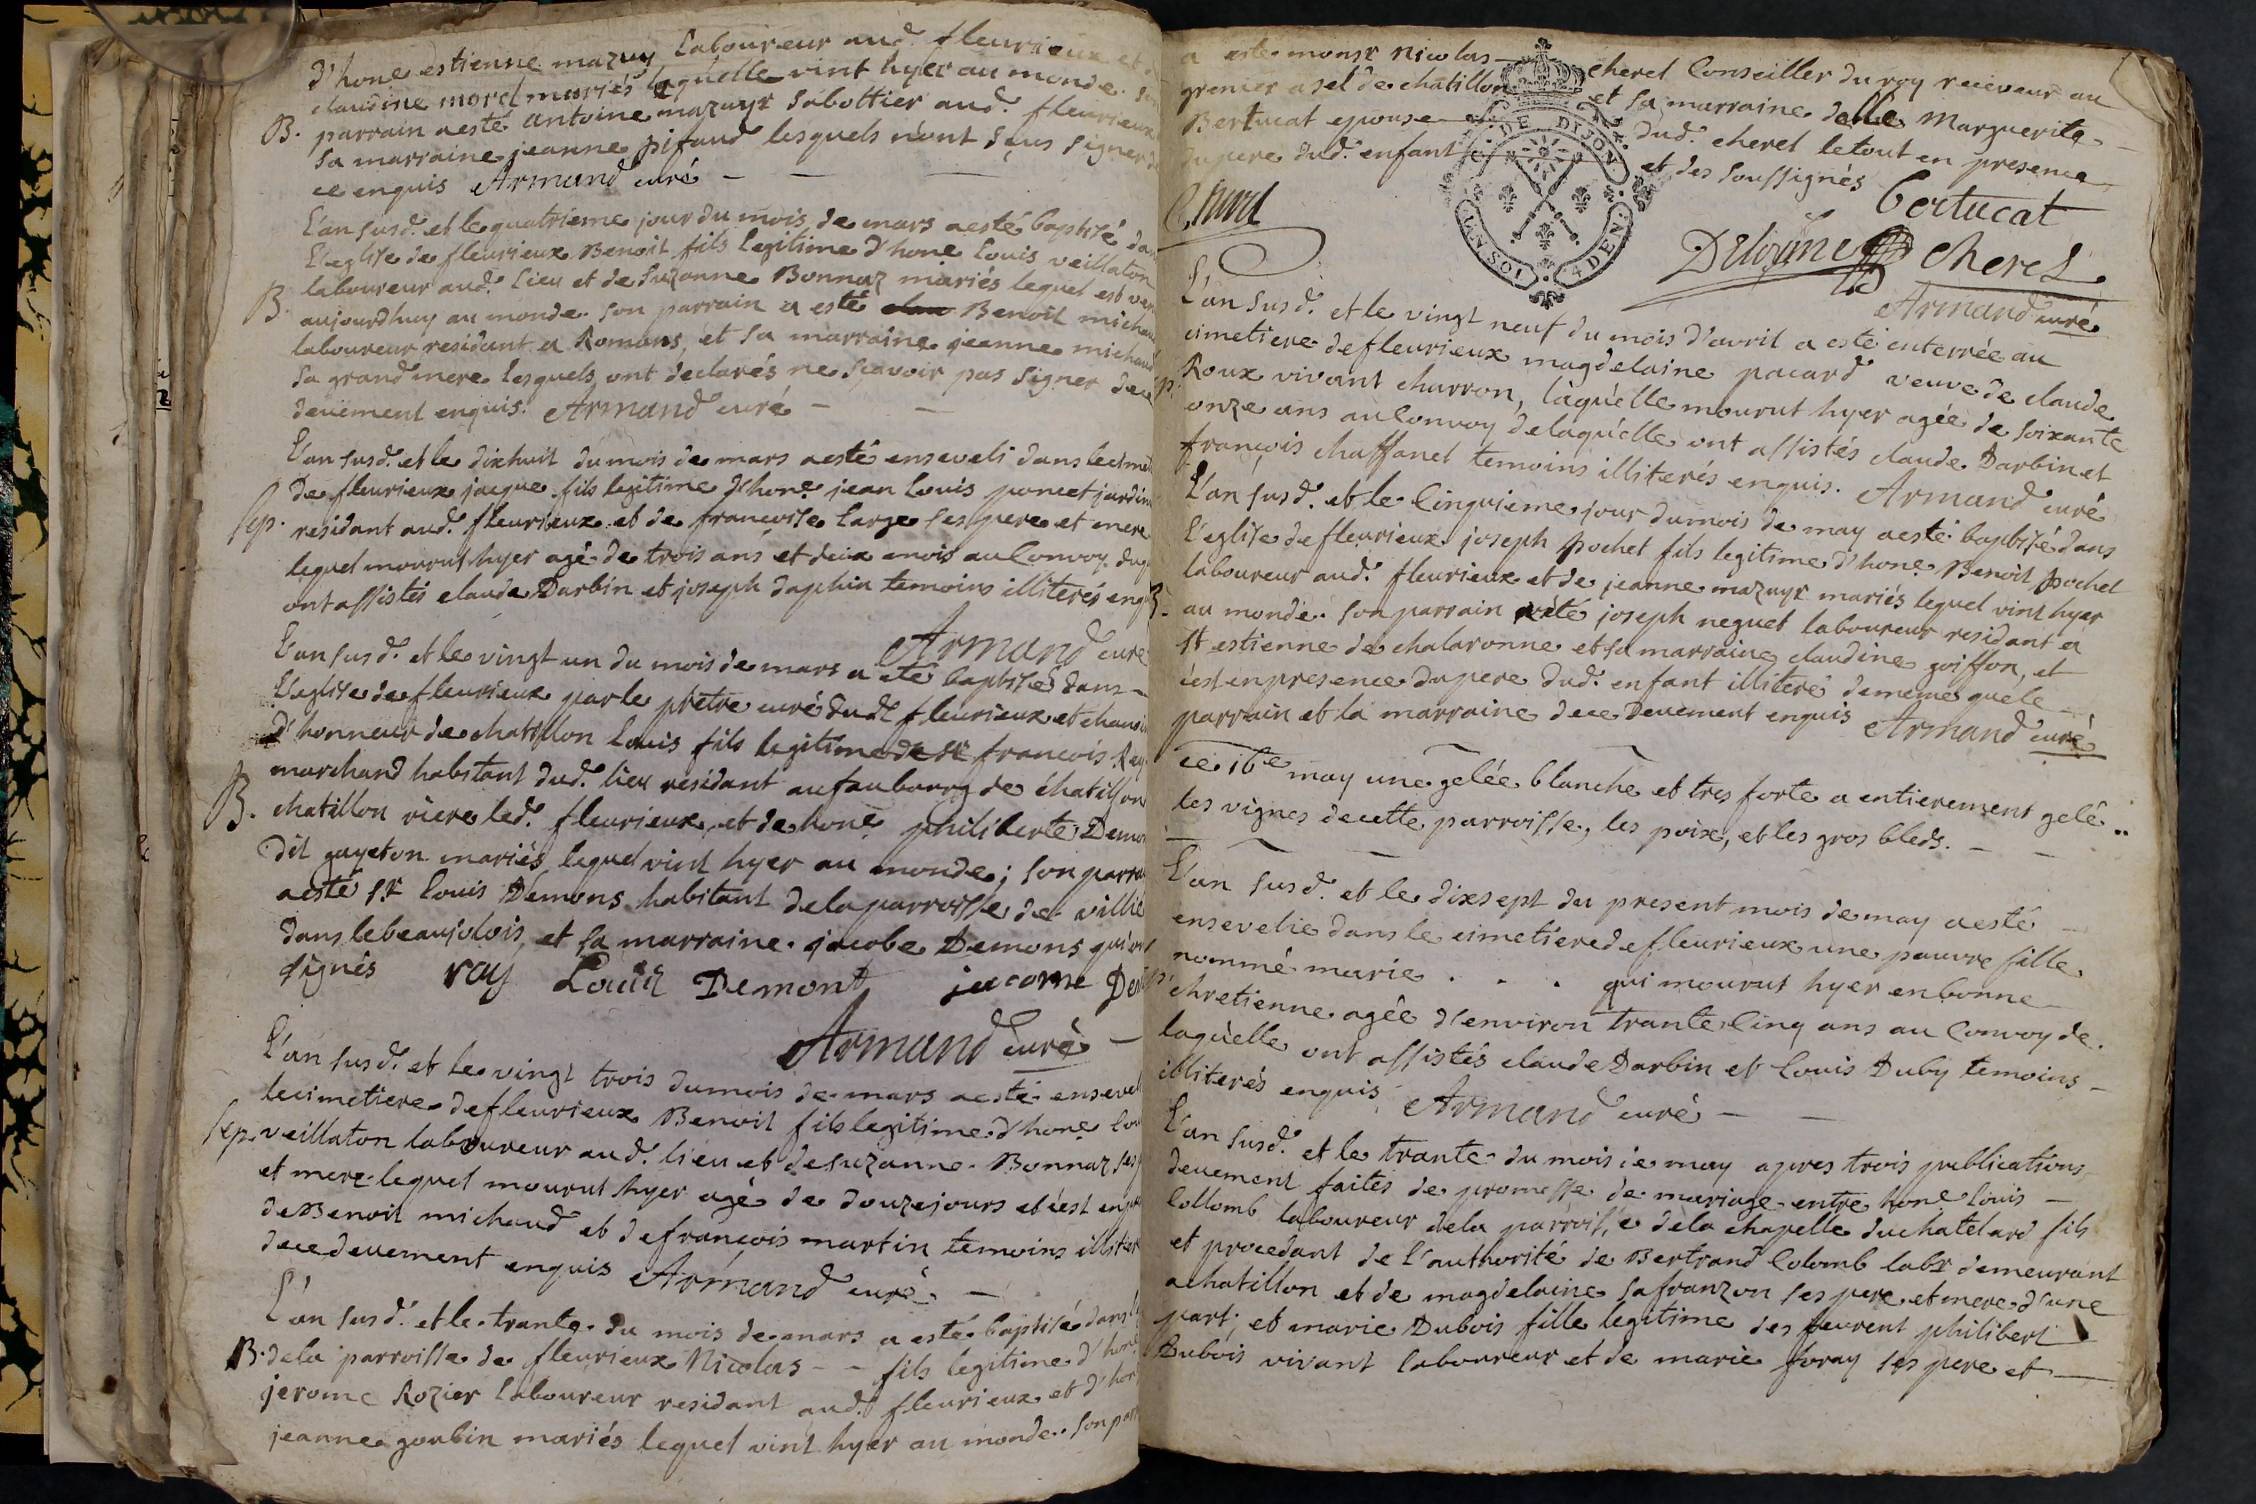 d'hone estienne mazuy Laboureur aud. fleurieux et
claudine morel mariés laquelle vint hyer au monde. son
B. parrain a esté antoine mazuyr sabottier aud. fleurieux
sa marraine jeanne pitaud lesquels n'ont sçus signer de
ce enquis Armand curé
L'an susd. et le quatrieme jour du mois de mars a esté baptisé dans
L'eglise de fleurieux Benoit fils legitime d'hone Louis veillaton
laboureur aud. lieu et de suzanne Bonnaz mariés lequel est venu
B. aujourdhuy au monde. son parrain a esté Benoit michaud
laboureur residant a Romans, et sa marraine jeanne michaud
sa grand mere lesquels ont declarés ne sçavoir pas signer de ce
deuement enquis. Armand curé
L'an susd. et le dixhuit du mois de mars a esté enseveli dans le cime
de fleurieux jacque fils legitime d'hone jean Louis poncet jardin
Sep. residant aud. fleurieux et de françoise Large ses pere et mere
lequel mourut hyer agé de trois ans et deux mois au Convoy duq
ont assistés claude Darbin et joseph daphin temoins illiterés enq
Armand curé
L'an susd. et le vingt un du mois de mars a eté baptisé dans
L'eglise de fleurieux par le prêtre curé dudt fleurieux et chanoi
d'honneur de chatillon Louis fils legitime de sr françois Ray
marchand habitant dud. lieu residant au faubourg de chatillon
B. chatillon riere led. fleurieux, et de hone philiberte Demon
dit gayeton mariés lequel vint hyer au monde; son parra
a esté sr. Louis Demons habitant de la parroisse de villié
dans le beaujolois, et sa marraine jacobe Demons qui on
signés ray Louis Demont jacome De
Armand curé
L'an susd. et le vingt trois du mois de mars a esté ensevel
le cimetiere de fleurieux Benoit fils legitime d'hone Lou
Sep. veillaton laboureur aud. lieu et de suzanne Bonnaz ses p
et mere lequel mourut hyer agé de douze jours et c'est en pre
de Benoit michaud et de françois martin temoins illiter
de ce deuement enquis Armand curé
L'an susd. et le trante du mois de mars a esté baptisé dans l
B. de la parroisse de fleurieux Nicolas - - fils legitime d'hon
jerome Rozier laboureur residant aud. fleurieux et d'hon
jeanne goubin mariés lequel vint hyer au monde. son par
a esté monsr Nicolas cheret Conseiller du roy receveur au
grenier a sel de chatillon et sa marraine delle Marguerite
Bertucat epouse dud. cheret le tout en presence
du pere dud. enfant et des soussignés
DE DIJON
UN SOL 4 DEN.
Bertucat
Delorme cheret
Armand curé
L'an susd. et le vingt neuf du mois d'avril a esté enterrée au
cimetiere de fleurieux magdelaine pacard veuve de claude
Sep. Roux vivant charron, laquelle mourut hyer agée de soixante
onze ans au Convoy de laquelle ont assistés claude Darbin et
françois chaffanel temoins illiterés enquis. Armand curé
L'an susd. et le Cinquieme jour du mois de may a esté baptisé dans
L'eglise de fleurieux joseph pochet fils legitime d'hone Benoit pochet
laboureur aud. fleurieux et de jeanne mazuyr mariés lequel vint hyer
B. au monde. son parrain a été joseph neguet laboureur residant a
st estienne de chalaronne et sa marraine claudine goiffon, et
c'est en presence du pere dud. enfant illiteré de meme que le
parrain et la marraine de ce Deuement enquis Armand curé
ce 16e may une gelée blanche et tres forte a entierement gelé
les vignes de cette parroisse, les poix, et les gros bleds.
L'an susd. et le dixsept du present mois de may a esté
ensevelie dans le cimetiere de fleurieux une pauvre fille
nommé marie . . . qui mourut hyer en bonne
chretienne agée d'environ trante Cinq ans au Convoy de
laquelle ont assistés claude Darbin et Louis Duby temoins
illiterés enquis Armand curé
L'an susd. et le trante du mois de may apres trois publications
deuement faites de promesse de mariage entre hone Louis
Collomb laboureur de la parroisse de la chapelle du chatelard fils
et procedant de l'authorité de Bertrand Colomb labr demeurant
a chatillon et de magdelaine safranzon ses pere et mere d'une
part; et marie Dubois fille legitime des feurent philibert
Dubois vivant laboureur et de marie foray ses pere et